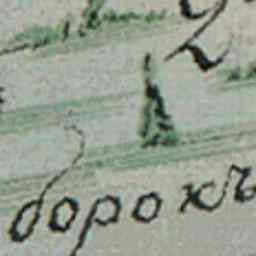 борокъ